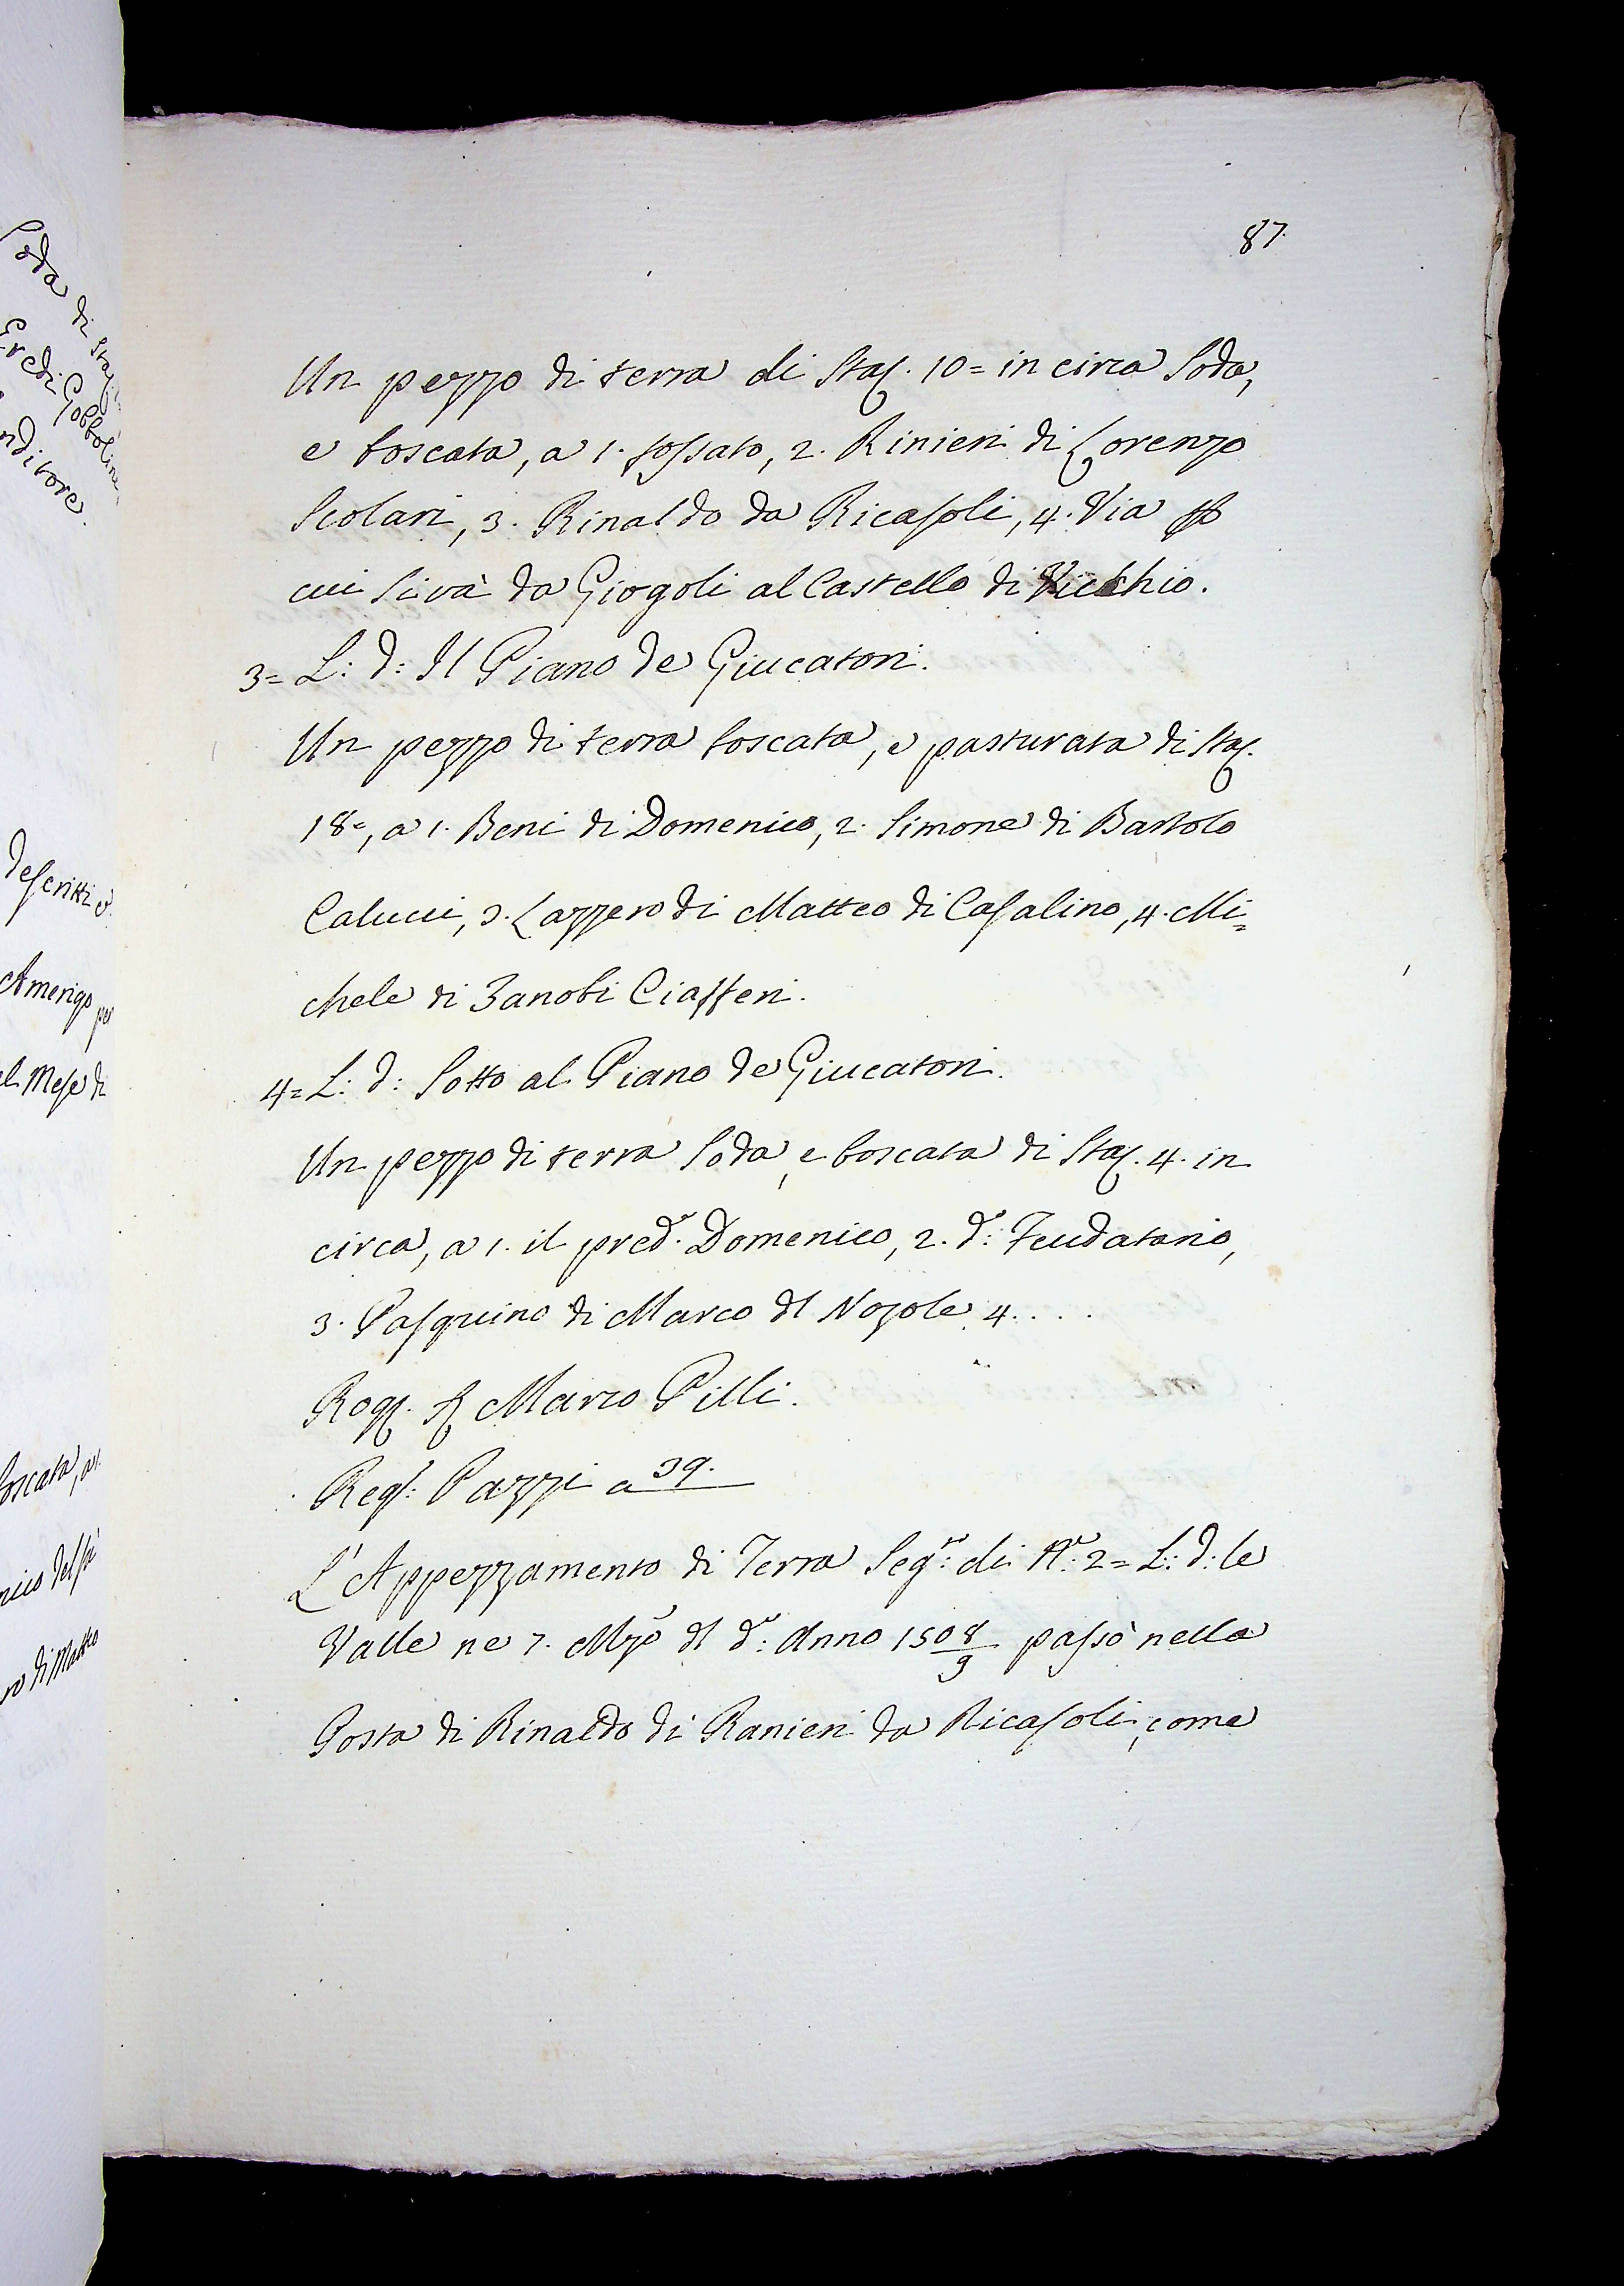 87.
Un pezzo di terra di Staj. 10 = in circa Soda,
e boscata, a 1. fossato, 2. Rinieri di Lorenzo
Scolari, 3. Rinaldo da Ricasoli, 4. Via p
cui si và da Giogoli al Castello di Vicchio.
3= L: d: Il Piano de Giucatori.
Un pezzo di terra boscata, e pasturata di Staj.
18=, a 1. Beni di Domenico, 2. Simone di Bartolo
Calucci, 3. Lazzero di Matteo di Casalino, 4. Mi=
chele di Zanobi Ciafferi.
4= L: d: Sotto al Piano de Giucatori.
Un pezzo di terra Soda, e boscata di Staj. 4. in
circa, a 1. il pred.º Domenico, 2. d.º: Feudatario,
3. Pasquino di Marco dl Nozole 4. . . .
Rog. Marco Pilli.
Reg: Pazzi a 39.
L'Appezzamento di Terra Seg.º: di N.º: 2= L: d: le
Valle ne 7. Mzo dl d.º: Anno 1508/9 passò nella
Posta di Rinaldo di Ranieri da Ricasoli, come
Soda di Staj
Eredi Gobbolini
nditore.
descritti e
Amerigo per
el Mese di
boscata, a 1.
nico del
ro di Matteo